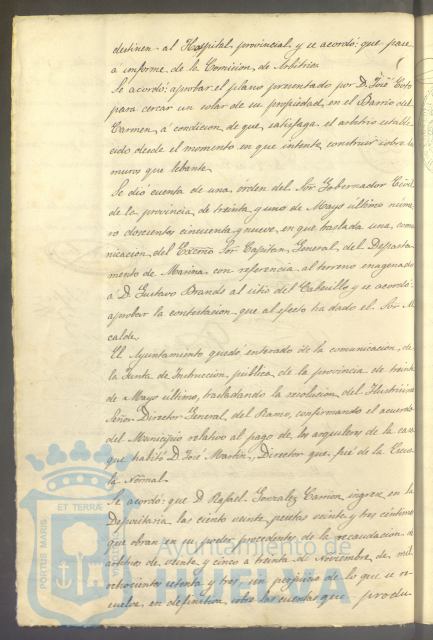 destinen al Hospital provincial y se acordó: que pase
á informe de la Comision de Arbitrios
Se acordó: aprobar el plano presentado por D. José Coto
para cercar un solar de su propiedad, en el Barrio del
Carmen, á condicion de que satisfaga el arbitrio estable-
cido desde el momento en que intente construir sobre los
muros que lebante.
Se dió cuenta de una órden del Sor Gobernador Civil
de la provincia de treinta y uno de Mayo último núme-
ro doscientos cincuenta y nueve, en que traslada una comu-
nicacion del Excmo Sor Capitan General del Departa-
mento de Marina con referencia al terreno enagenado
á D. Gustavo Brando al sitio del Cabesillo y se acordó:
aprobar la contestacion que al efecto ha dado el Sor Al-
calde.
El Ayuntamiento quedó enterado de la comunicacion de
la Junta de Instruccion pública de la provincia de treinta
de Mayo último, trasladando la resolucion del Ilustrísimo
Señor Director General del Ramo, confirmando el acuerdo
del Municipio relativo al pago de los arquileres de la casa
que habitó D. José Martin, Director que fué de la Escue-
la Normal.
Se acordó: que D. Rafael Gonzalez Carrion ingrese en la
Depositaría las ciento veinte pesetas veinte y tres céntimos
que obran en su poder procedentes de la recaudacion de
arbitrios de veinte y cinco á treinta de Noviembre de mil
ochocientos setenta y tres sin perjuicio de lo que se re-
suelva en definitiva sobre las cuentas que produ-
PORTUS MARIS ET TERRÆ CUSTODIA
Ayuntamiento de
HUELVA